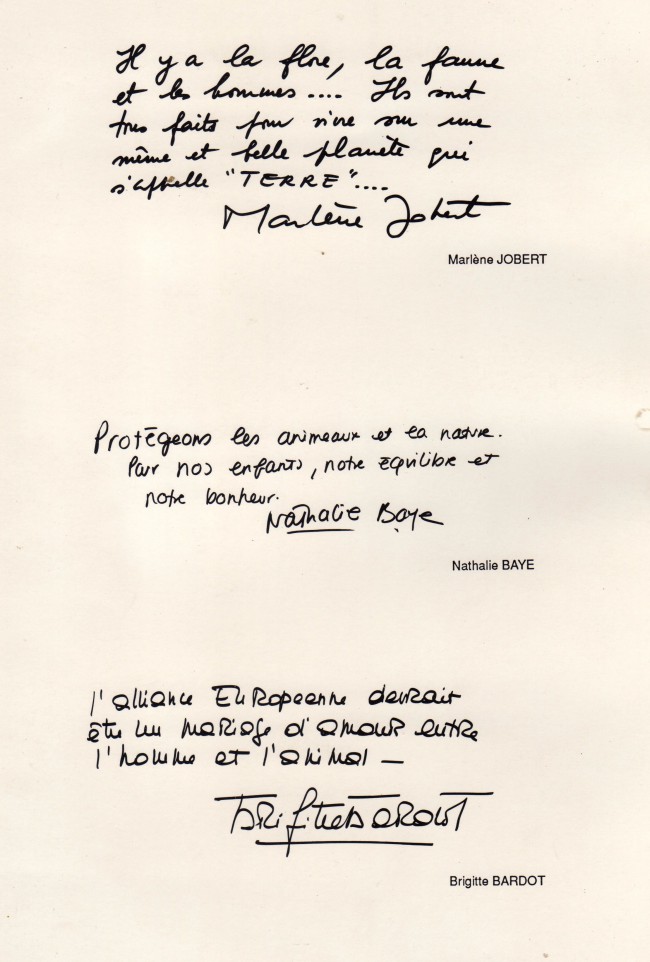 Il y a la flore, la faune
et les hommes.... Ils sont
tous faits pour vivre sur une
même et belle planète qui
s'appelle "TERRE"....
Marlène Jobert
Marlène JOBERT
Protégeons les animeaux et la nature.
Pour nos enfants, notre équilibre et
notre bonheur.
Nathalie Baye
Nathalie BAYE
l'alliance Européenne devrait
être un mariage d'amour entre
l'homme et l'animal —
Brigitte Bardot
Brigitte BARDOT